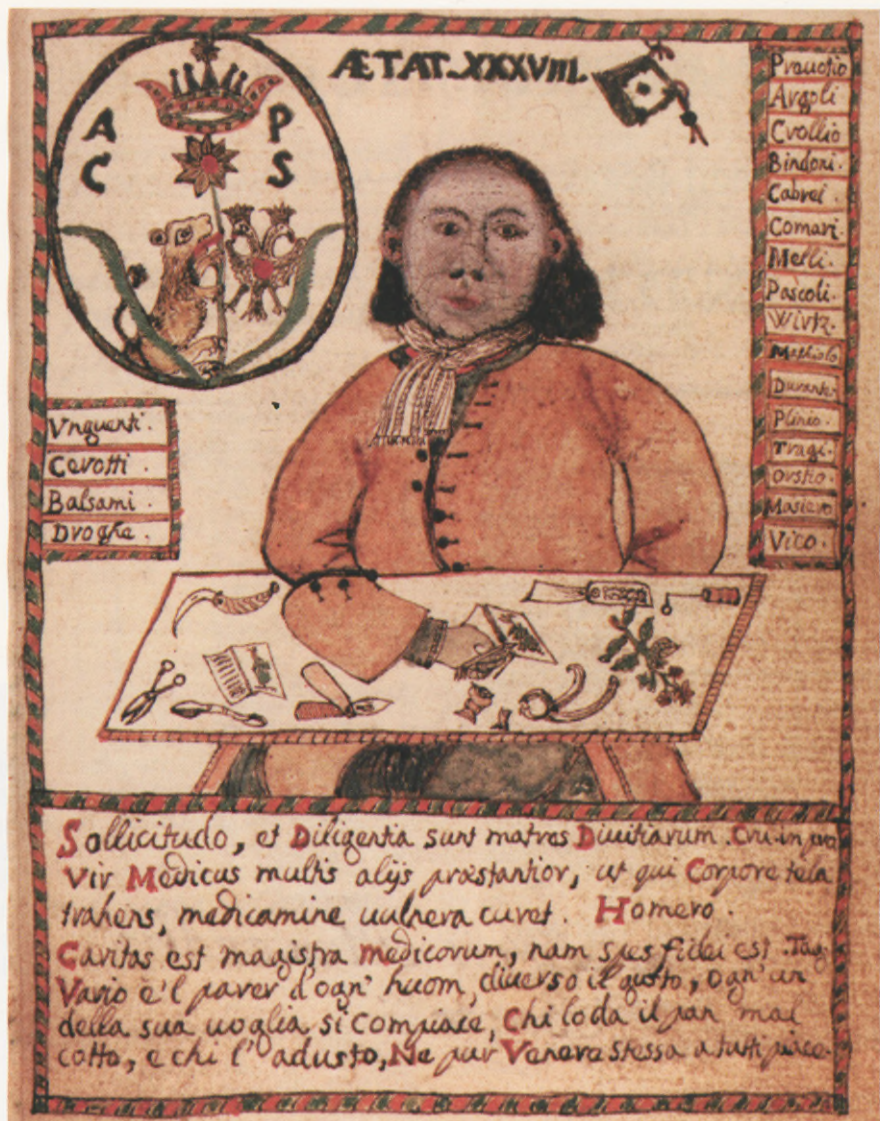 ÆTAT. XXXVIII.
A P
C S
Unguenti.
Cerotti.
Balsami.
Droghe.
Argoli
Crollio
Bindoni.
Cabrei.
Comari.
Melli.
Pascoli.
Wirtz.
Mathiolo
Durante.
Plinio.
Tragi.
Masiero
Vico.
Sollicitudo, et Diligentia sunt matres Diuitiarum.
Vir Medicus multis alijs præstantior, ut qui Corpore tela
trahens, medicamine uulnera curet. Homero.
Caritas est magistra medicorum, nam spes fidei est. Tag
Vario e'l parer d'ogn' huom, diuerso il gusto, ogn'un
della sua uoglia si compiace, Chi loda il pan mal
cotto, e chi l'adusto, Ne pur Venere stessa a tutti piace.